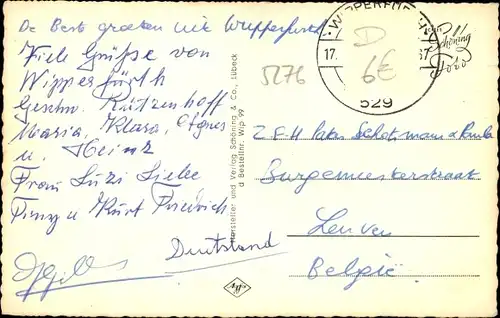 De Beste groeten uit Wipperfürth
Viele Grüße von
Wipperfürth
Geschw.
Maria, Klara, Agnes
u. Heinz
Frau Luzi Liebe
Fanny u Kurt Friedrich
Deutsland
Hersteller und Verlag Schöning & Co., Lübeck
d Bestellnr. Wip 99
WIPPERFÜRTH
17.
67
529
Schöning
Foto
D
6€
5276
Z.E.H Pater
Burgemeesterstraat
Leuven
België